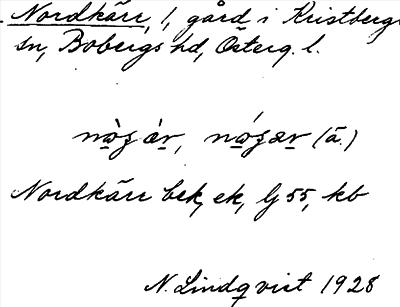 Nordkärr, 1, gård i Kristbergs
sn, Bobergs hd, Österg. l.
nò̱gàr, nó̱gær (ā.)
Nordkärr bek, ek, lj 55, kb
N. Lindqvist 1928